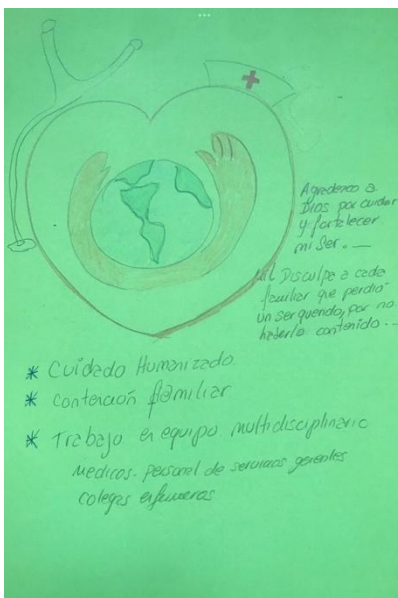 Agradezco a
Dios por cuidar
y fortalecer
mi Ser. __
Mil Disculpa a cada
familiar que perdió
un ser querido, por no
haberlo contenido...
* Cuidado Humanizado
* Contención familiar
* Trabajo en equipo multidisciplinario
Medicos - personal de servicios gerentes
Colegas enfermeras